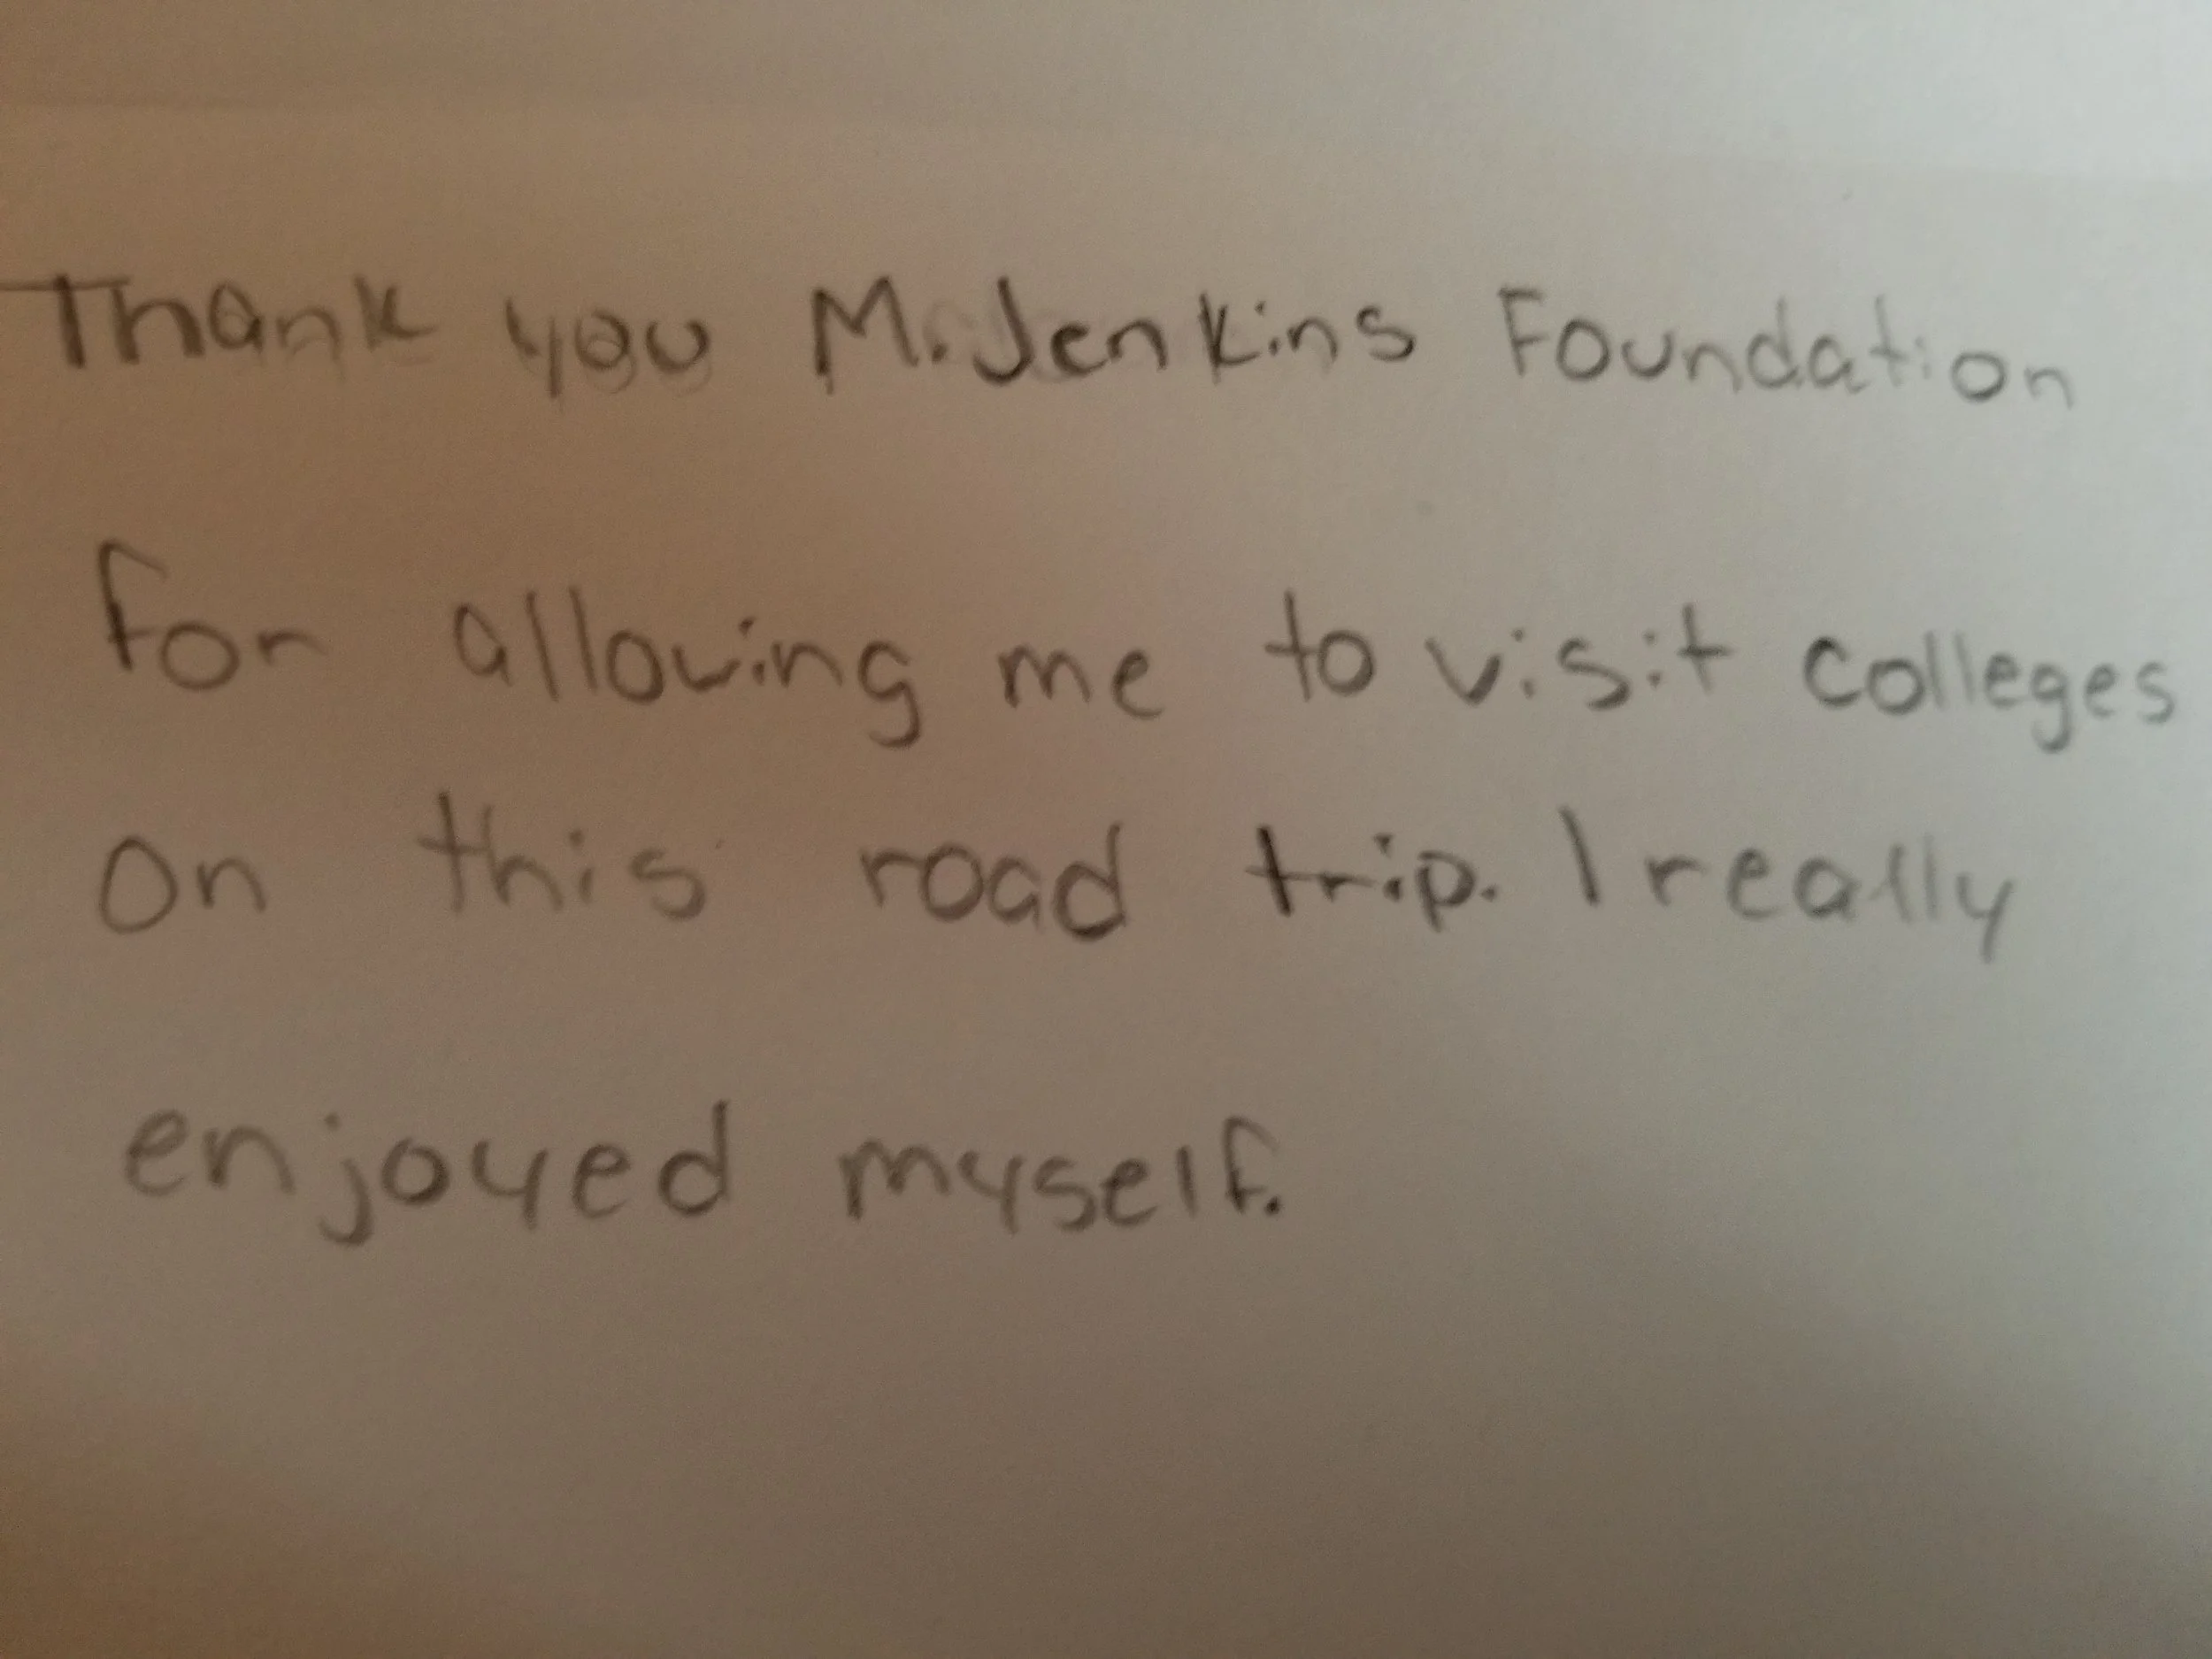 Thank you M. Jenkins Foundation
for allowing me to visit colleges
on this road trip. I really
enjoyed myself.